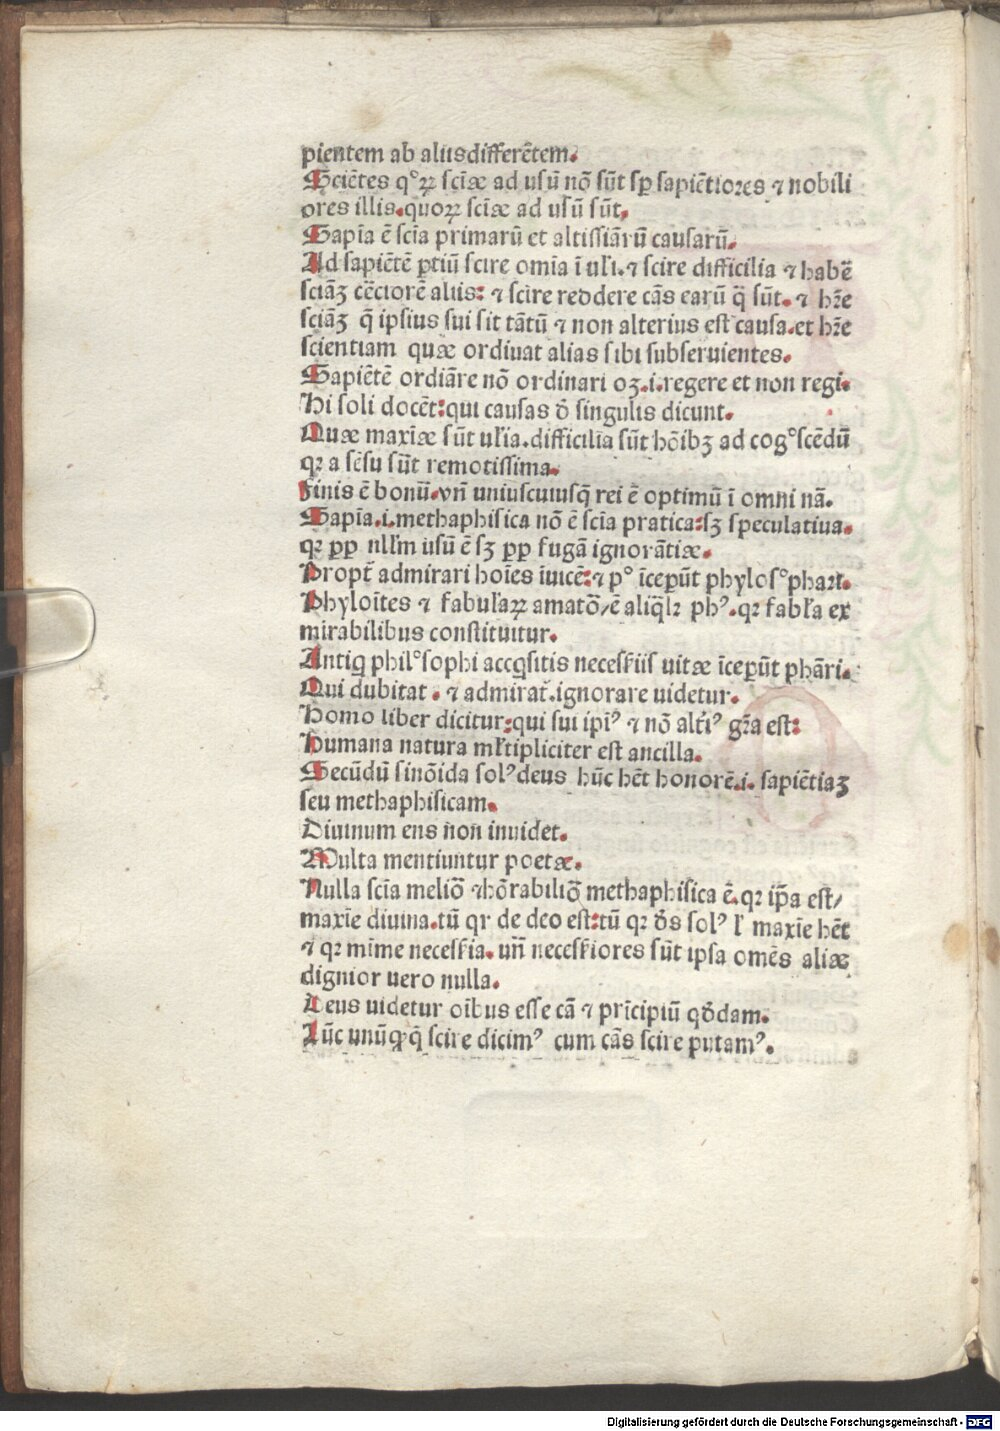 pientem ab aliis differētem.
Sciētes qͦꝝ scīæ ad usū nō sūt sꝑ sapiētiores ⁊ nobili
ores illis.quoꝝ scīæ ad usū sūt.
Sapīa ē scīa primarū et altissīarū causarū.
Ad sapiētē ꝑtiū scire omīa ī ul̄i.⁊ scire difficilia ⁊ habē
sciāꝫ cēctiorē aliis: ⁊ scire reddere cās earū q̄ sūt. ⁊ hr̄e
sciāꝫ q̄ ipsius sui sit tātū ⁊ non alterius est causa.et hr̄e
scientiam quæ ordinat alias sibi subseruientes.
Sapiētē ordiāre nō ordinari oꝫ.i.regere et non regi.
Hi soli docēt:qui causas ð singulis dicunt.
Quæ maxīæ sūt ul̄ia.difficilia sūt hōibꝫ ad cogͦscēdū
qꝛ a sēsu sūt remotissima.
Finis ē bonū.vn̄ uniuscuiusqꝫ rei ē optimū ī omni nā.
Sapīa.i.methaphisica nō ē scīa pratica:sꝫ speculatiua.
qꝛ ꝓp nll̄m usū ē sꝫ ꝓp fugā ignorātiæ.
Propt̄ admirari hoīes īuicē:⁊ pͦ īceperūt phylosͦphari.
Phyloītes ⁊ fabulaꝝ amatō/ē aliq̄lꝛ phꝰ.qꝛ fabl̄a ex
mirabilibus constituitur.
Antiqͥ philͦsophi accqͥsitis necessiis uitæ īceperūt phāri.
Qui dubitat . ⁊ admirat̄.ignorare uidetur.
Homo liber dicitur:qui sui ipīꝰ ⁊ nō alt̄iꝰ gr̄a est:
Humana natura ml̄tipliciter est ancilla.
Secūdū sinōida solꝰ deus hūc hēt honorē.i. sapiētiaꝫ
seu methaphisicam.
Diuinum ens non inuidet.
Multa mentiuntur poetæ.
Nulla scīa meliō ⁊hōrabiliō methaphisica ē.qꝛ ip̄a est/
maxīe diuina.tū qꝛ de deo est:tū qꝛ ðs solꝰ l̄ maxīe hēt
⁊ qꝛ mīme necessia. un̄ necessiores sūt ipsa omēs aliæ
dignior uero nulla.
Deus uidetur oībus esse cā ⁊ prīcipiū qðdam.
Tūc unūqꝫq̄ scire dicimꝰ cum cās scire putamꝰ.
Digitalisierung gefördert durch die Deutsche Forschungsgemeinschaft - DFG